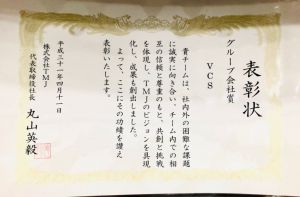 表彰状
グループ会社賞
VCS
貴チームは、社内外の困難な課題
に誠実に向き合い、チーム内での相
互の信頼と尊重のもと、共創と挑戦
を体現し、TMJのビジョンを具現
化し、成果も創出しました。
よって、ここにその功績を讃え
表彰いたします。
平成三十一年四月十一日
株式会社TMJ
代表取締役社長
丸山英毅